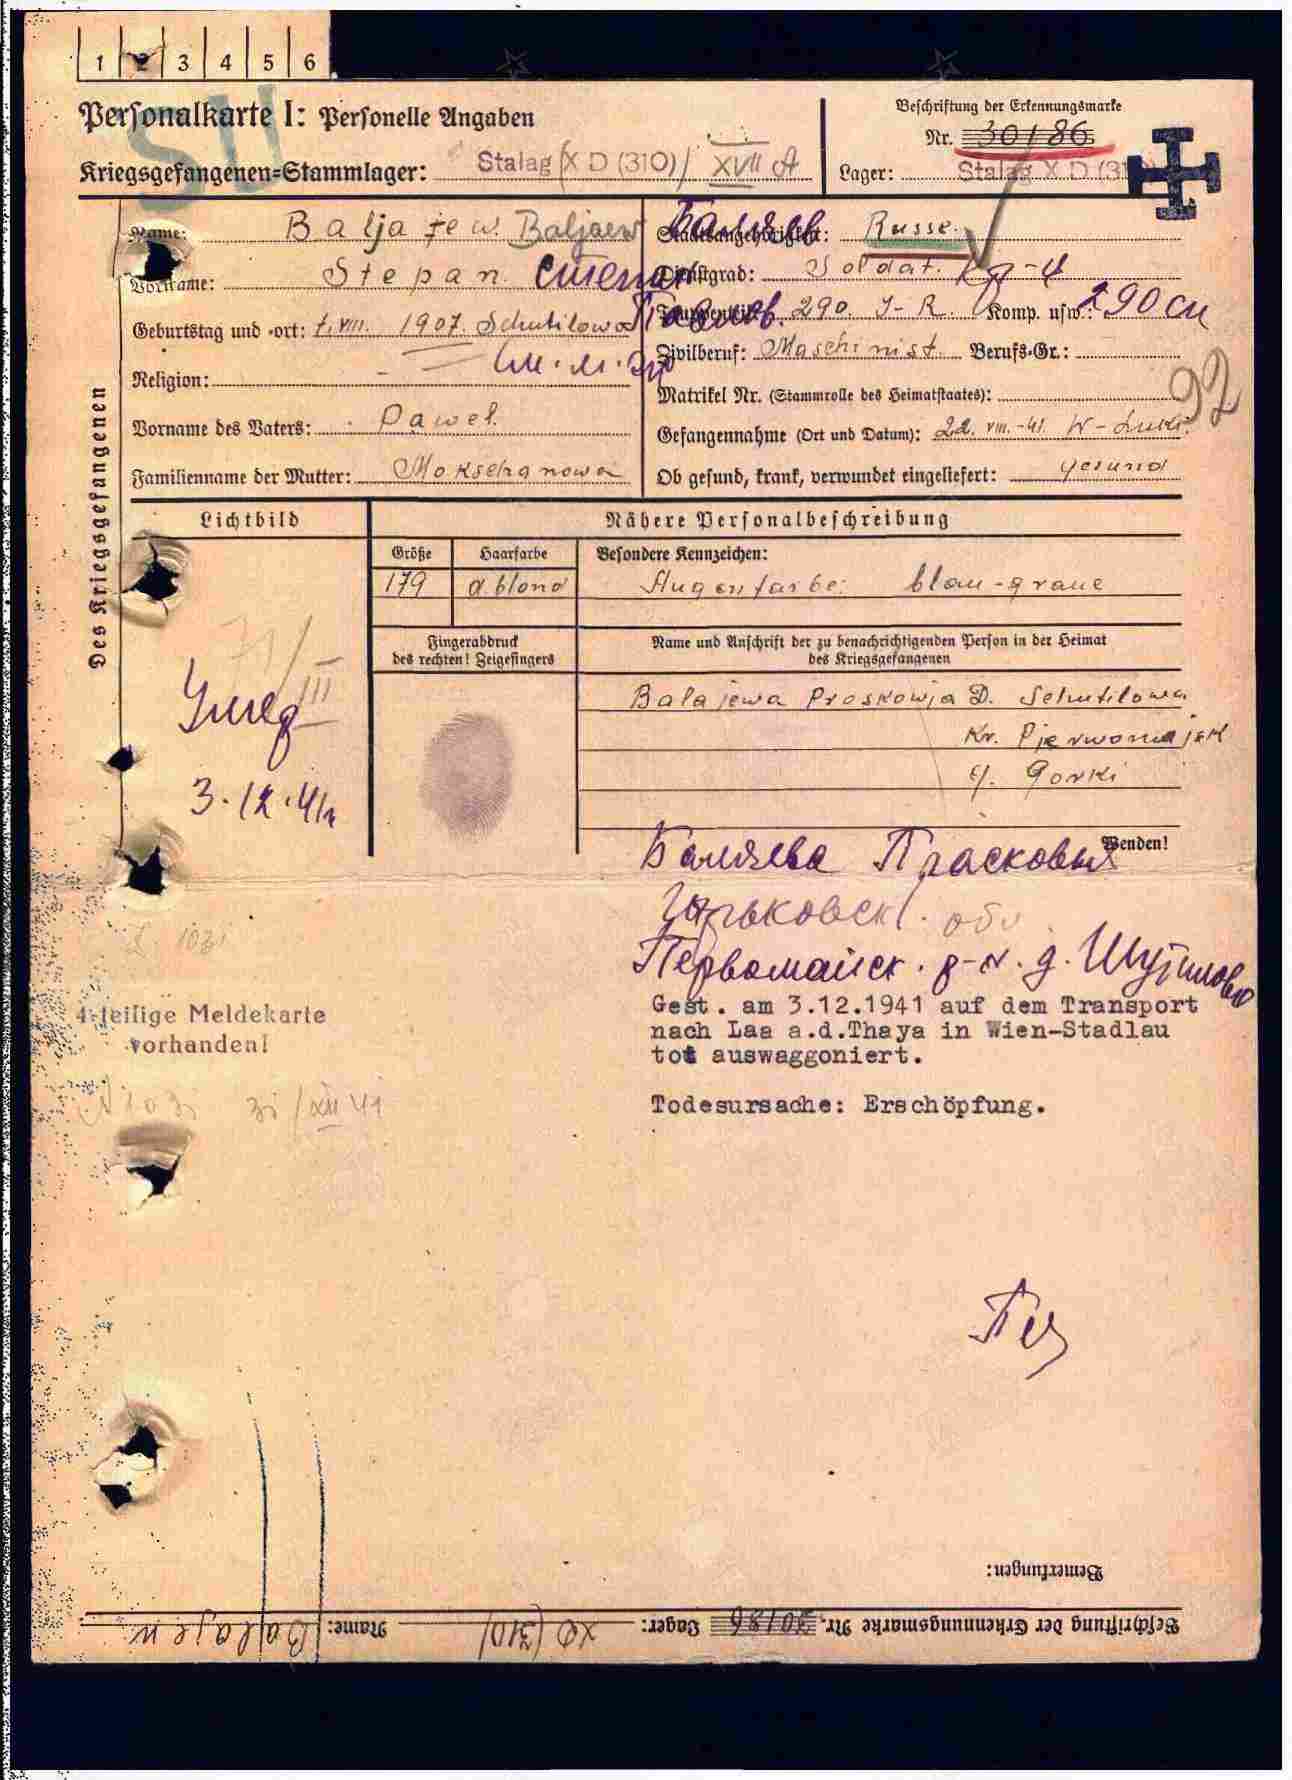 1 2 3 4 5 6
SU
Personalkarte I: Personelle Angaben
Kriegsgefangenen=Stammlager: Stalag X D (310) / XVII A
Beschriftung der Erkennungsmarke
Nr. 30186
Lager: Stalag X D (31
Des Kriegsgefangenen
Name: Baljajew Baljaew Баляев
Vorname: Stepan. Степан
Павлов.
Geburtstag und -ort: 7. VIII. 1907. Schutilowo
Religion: -
Vorname des Vaters: Pawel.
Familienname der Mutter: Mokschanowa
Staatsangehörigkeit: Russe.
Dienstgrad: Soldat. кр-ц
Truppenteil: 290. J-R. Komp. usw.: 290 сп
Zivilberuf: Maschinist. Berufs-Gr.:
Matrikel Nr. (Stammrolle des Heimatstaates):
92
Gefangennahme (Ort und Datum): 22. VIII.-41. W-Luki.
Ob gesund, krank, verwundet eingeliefert: gesund
Lichtbild
Nähere Personalbeschreibung
Größe Haarfarbe Besondere Kennzeichen:
179 d.blond Augenfarbe: blau-graue
Fingerabdruck
des rechten! Zeigefingers
Name und Anschrift der zu benachrichtigenden Person in der Heimat
des Kriegsgefangenen
Balajewa Proskowja D. Schutilowa
Kr. Pjerwomajsk
G. Gorki
Умер
3.12.41г
Wenden!
Баляева Прасковья
Горьковск. обл
Первомайск. р-н. д. Шутилово
4-teilige Meldekarte
vorhanden!
Gest. am 3.12.1941 auf dem Transport
nach Laa a.d.Thaya in Wien-Stadlau
tot auswaggoniert.
Todesursache: Erschöpfung.
31/XII 41
Bemerkungen:
Beschriftung der Erkennungsmarke Nr. 30186 Lager: XD (310) Name: Balajew